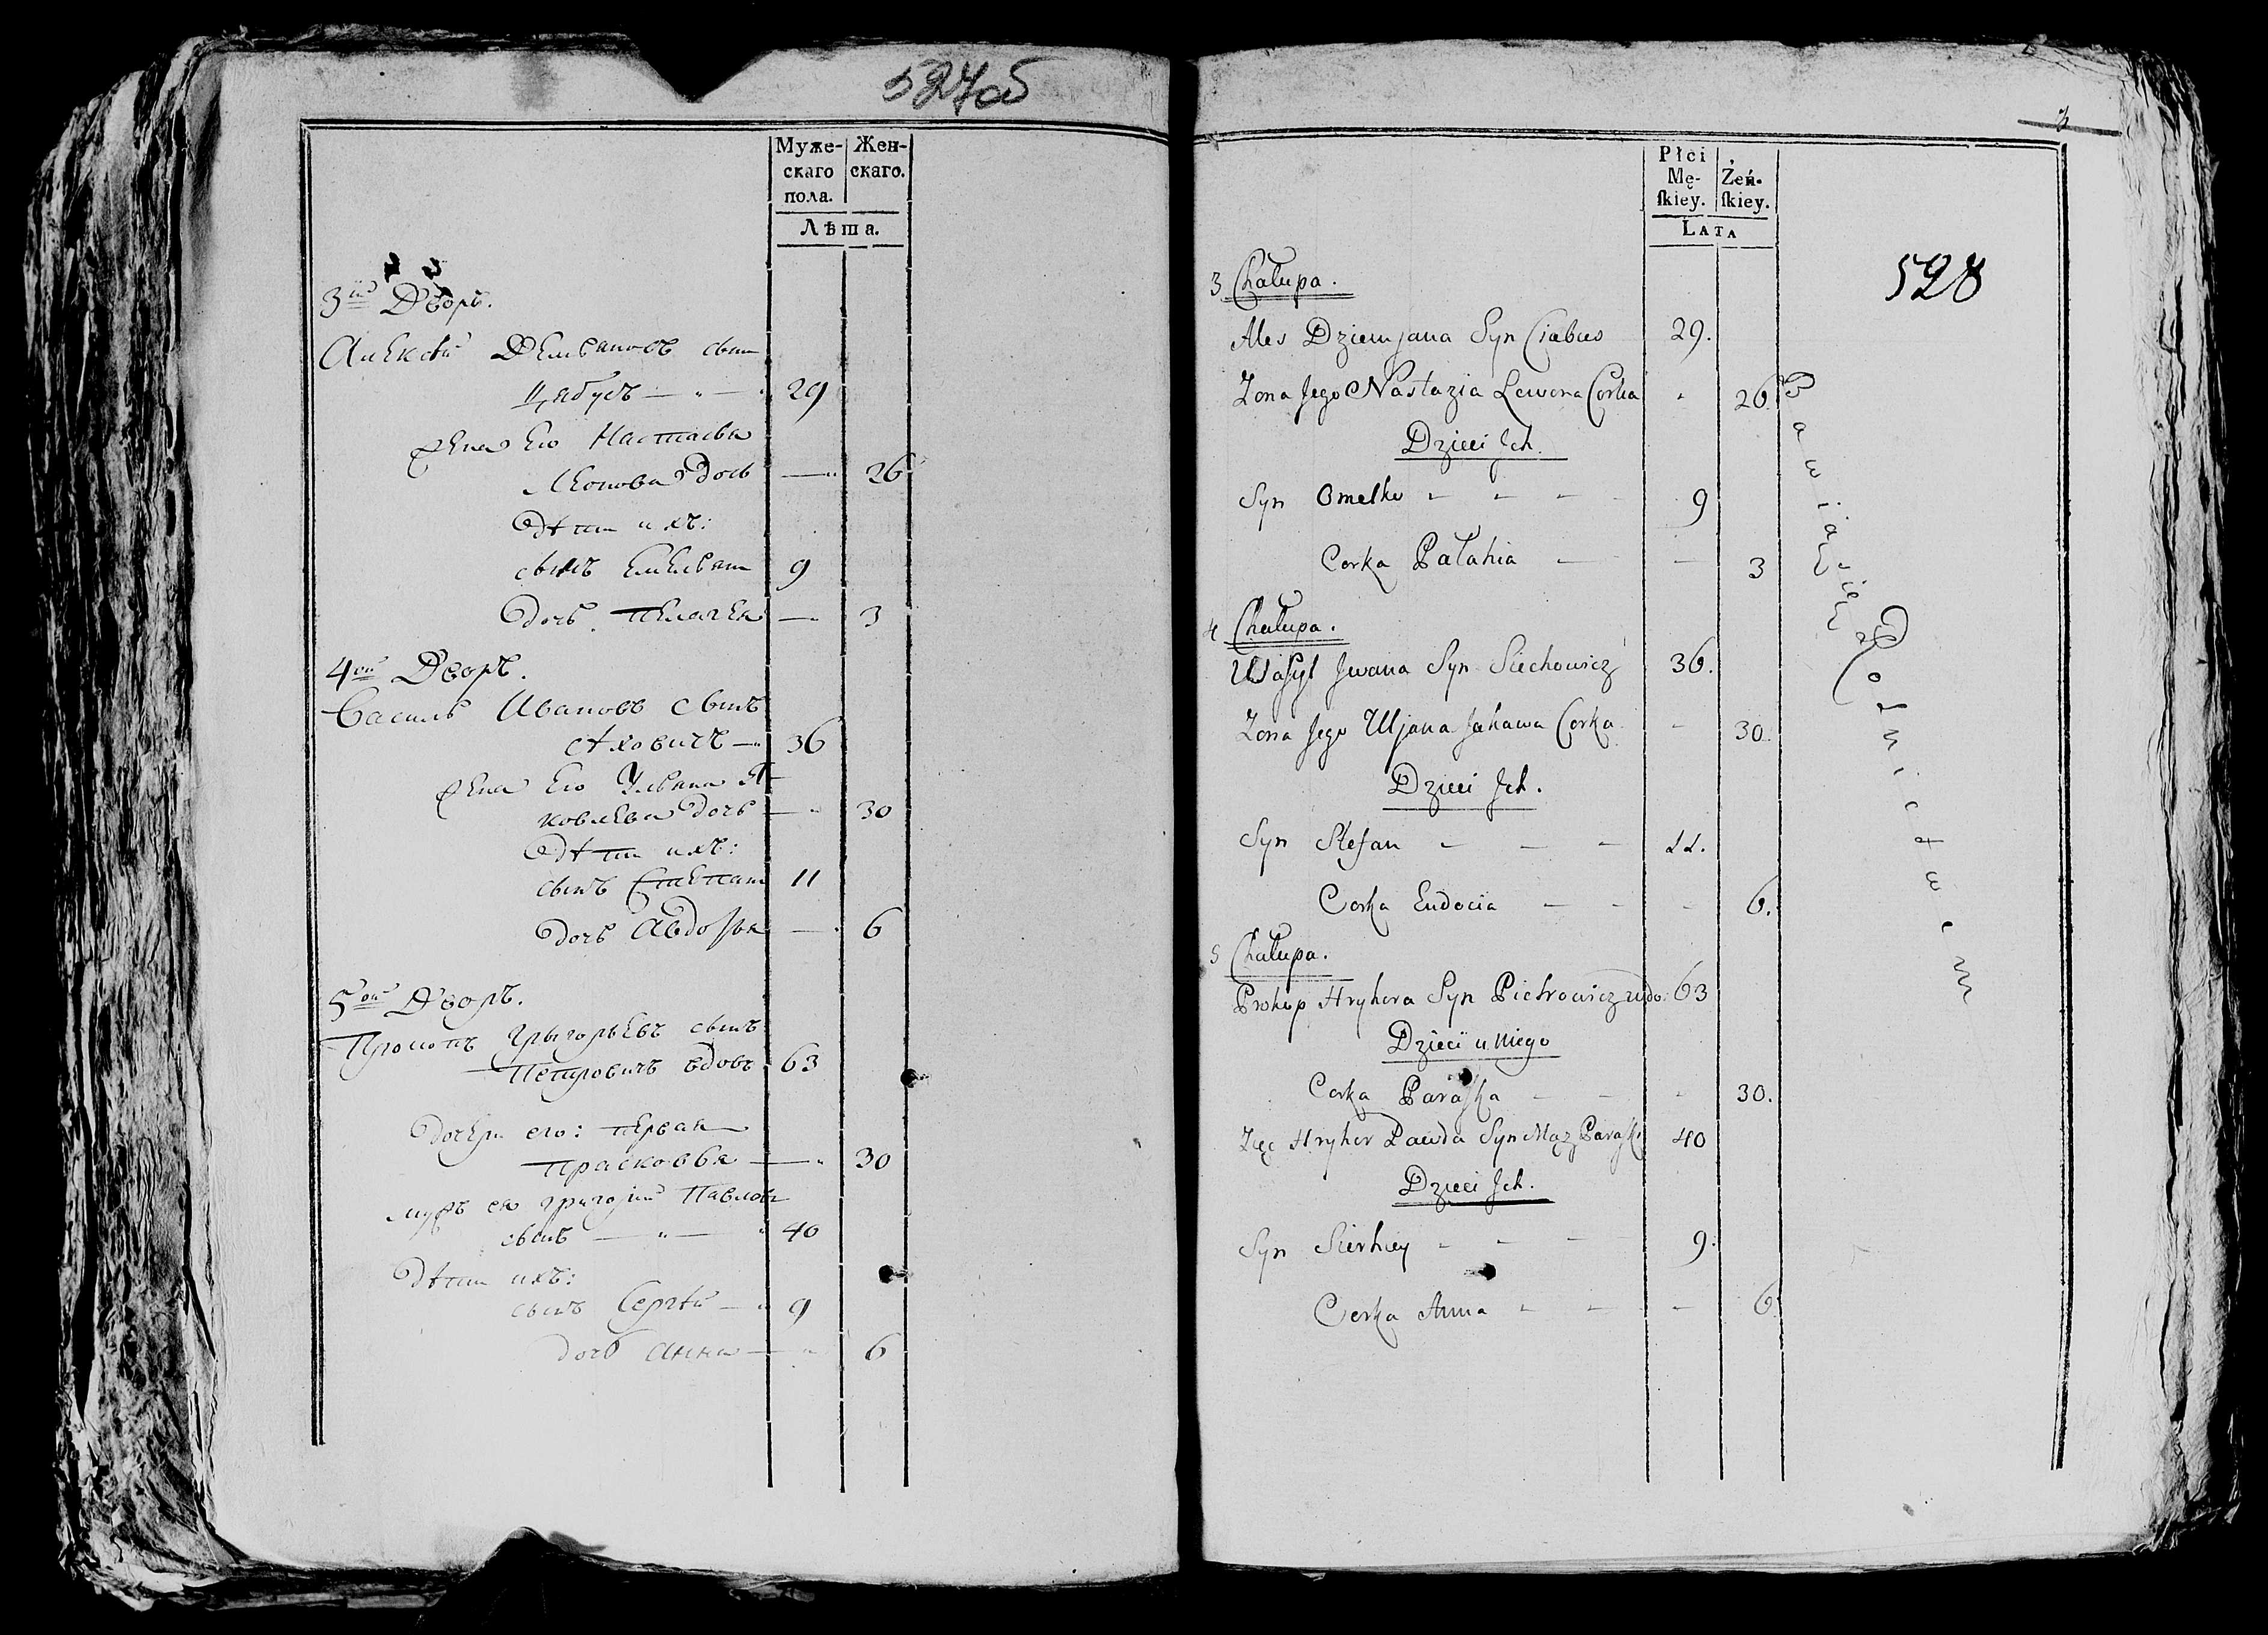 527об
Муже-
скаго
пола.
Жен-
скаго.
Лѣта.
3й Дворъ.
Алексѣй Демьяновъ сынъ
Цябусъ — „ — 29
Жена Его Настасья
Леонова дочь — „ 26
Дѣти ихъ:
сынъ Емельянъ 9
дочь Пелагея — 3
4ой Дворъ.
Василь Ивановъ сынъ
Сѣховичъ — 36
Жена Его Ульяна Я-
ковлева дочь — 30
Дѣти ихъ:
сынъ Степанъ 11
дочь Авдотья — 6
5ой Дворъ.
Прокопъ Григорьевъ сынъ
Петровичъ вдовъ 63
Дочери его: первая
Прасковья — „ 30
мужъ ею Григорій Павловъ
сынъ — „ — 40
Дѣти ихъ:
сынъ Сергѣй — 9
дочь Анна — „ 6
3
Płci
Mę-
ſkiey.
Żeń-
ſkiey.
LATA
528
3 Chałupa.
Ales Dziemjana Syn Ciabus 29.
Zona Jego Nastazia Lewona Corka - 26.
Dzieci Jch.
Syn Omelko - - - - 9
Corka Pałahia - - 3
4 Chałupa.
Wasyl Jwana Syn Siechowicz 36.
Zona Jego Uljana Jakawa Corka - 30.
Dzieci Jch.
Syn Stefan - - - 11.
Corka Eudocia - - - 6.
5 Chałupa.
Prokop Hryhora Syn Pietrowicz wdo: 63
Dzieci u Niego
Corka Paraſka - - - 30.
Zięć Hryhor Pawła Syn Mąz Paraſki 40
Dzieci Jch.
Syn Sierhiey - - - 9.
Corka Anna - - - 6
Bawią się Rolnictwem